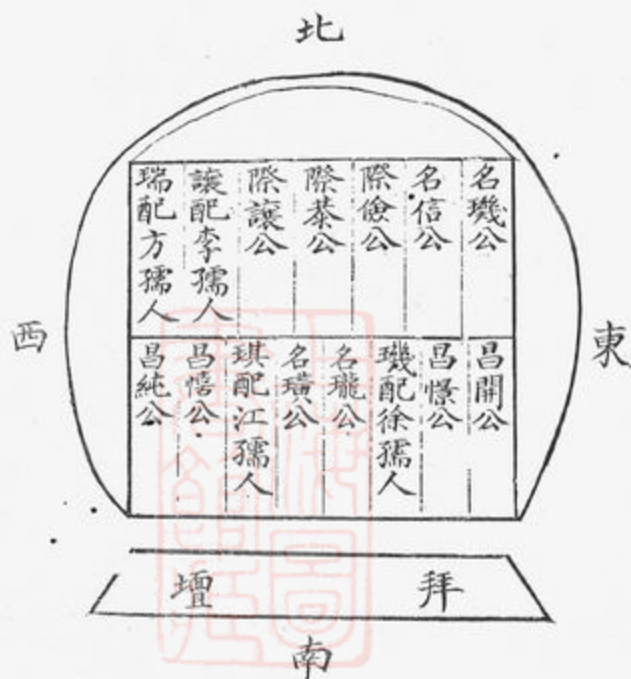 北
東
西
南
名璣公
名信公
際儉公
際恭公
際讓公
讓配李孺人
瑞配方孺人
昌開公
昌憬公
璣配徐孺人
名瓏公
名璜公
琪配江孺人
昌憘公
昌純公
拜壇